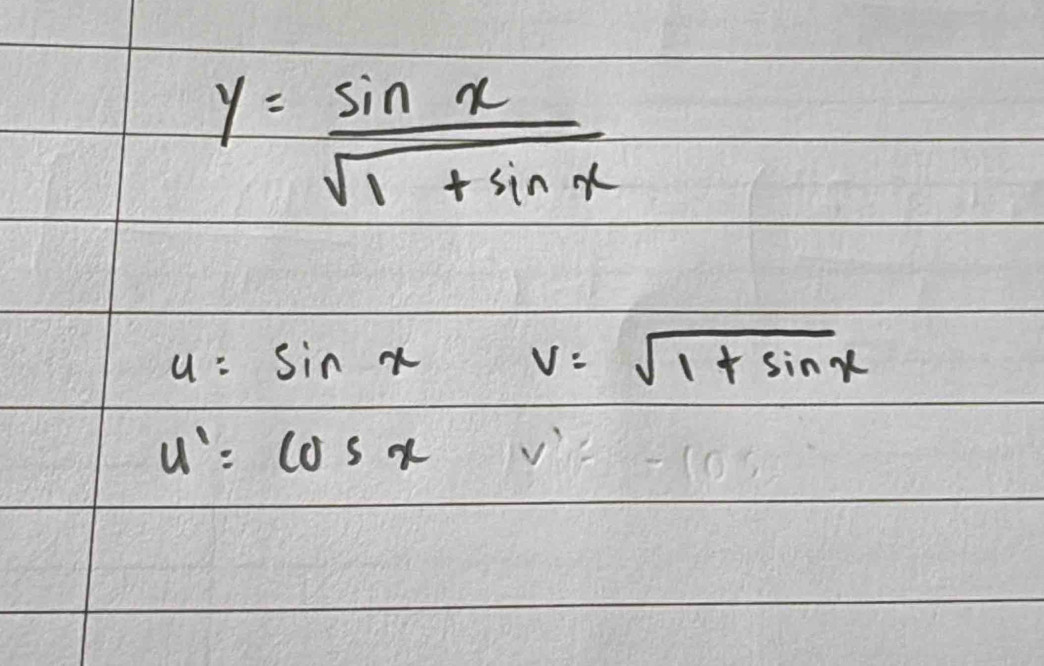 y = sin x
√1 + sin x
u = sin x v = √1 + sin x
u' = cos x v' =